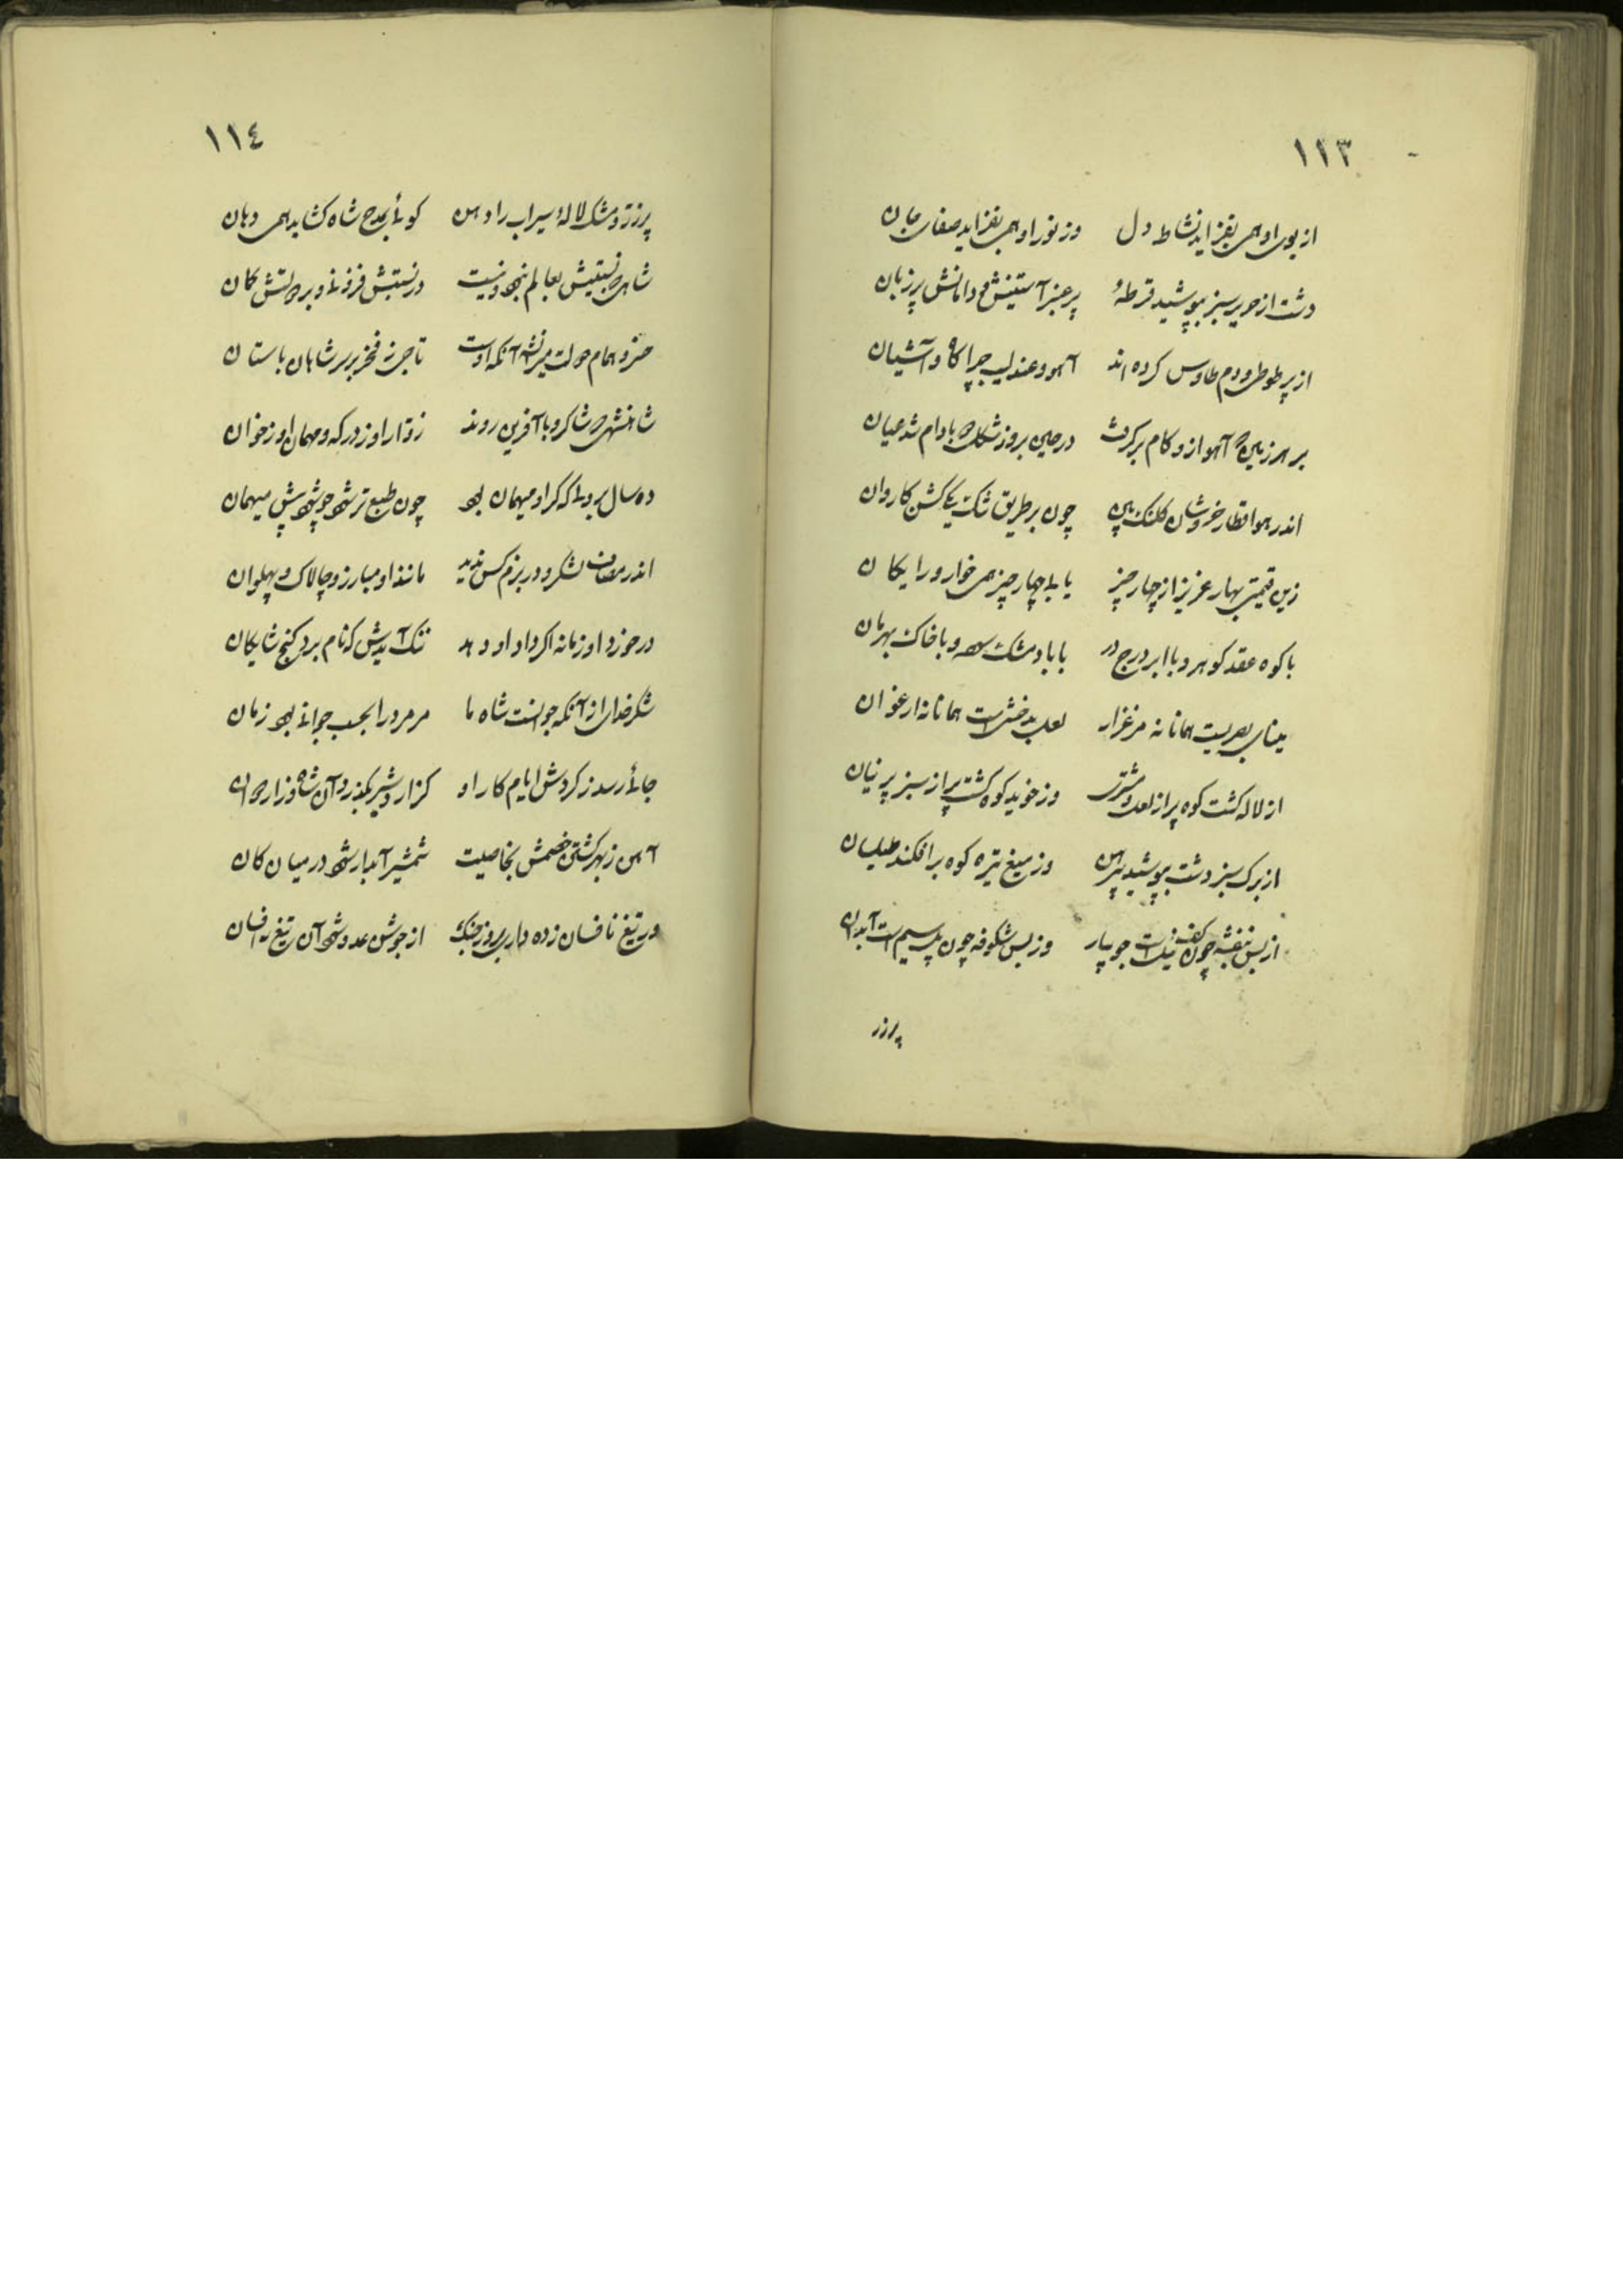 ١١٣
از بوی او همی بفزاید نشاط دل وز نور او همی بفزاید صفای جان
دشت از حریر سبز بپوشید قرطهٔ پر عنبر آستینش و دامانش پر زبان
از پر طوطی و دم طاوس کرده اند آهو و عندلیب چراگاه و آشیان
بر هر زمین که آهو ازو کام برگرفت در حین بروز شکل بادام شد عیان
اندر هوا قطار خروشان کلنک بین چون بر طریق تنک یکی کشن کاروان
زین قیمتی بهار عزیز از چهار چیز یابد چهار چیز همی خوار و رایکان
با کوه عقد کوهر و با ابر درج در با باد مشک سوده و با خاک بهرمان
مینای بصریست همانا نه مرغزار لعل بدخشی است همانا نه ارغوان
از لاله کشت کوه پر از لعل مشتری وز خوید کوه کشت پر از سبز پرنیان
از برک سبز دشت بپوشید پیرهن وز میغ تیره کوه برافکند طیلسان
از بس بنفشه چون کف نیل است جویبار وز بس شکوفه چون پل سیم است آبدان
پر زر
١١٤
پر زر و مشک لالهٔ سیراب را دهن کوئی بمدح شاه کشاید همی دهان
شاهی که نیستیش بعالم نبود و نیست در نسبتش فزونی و بر دولتش کمان
خسرو همام دولت میرانشه آنکه اوست تاجی ز فخر بر سر شاهان باستان
شاهنشهی که شاکر و با آفرین روند زوار او ز درکه و مهمان او ز خوان
ده سال بر ولی که کر او میهمان بود چون طبع تر شود چو شود پیش میهمان
اندر مصاف لشکر و در بزم کس ندید مانند او مبارز و چالاک و پهلوان
در خورد او زمانه اکر داد او دهد ننک آیدش که نام برد کنج شایکان
شکر خدای از آنکه جوانست شاه ما مر مرد را بحسب جوانی بود زمان
جائی رسد ز کردش ایام کار او کز اردشیر بگذرد آن شاه و ز اردوان
آهن ز بهر کشتن خصمش بخاصیت شمشیر آبدار شود در میان کان
ور تیغ نافسان زده دارد بروز جنک از جوشن عدو شود آن تیغ را فسان